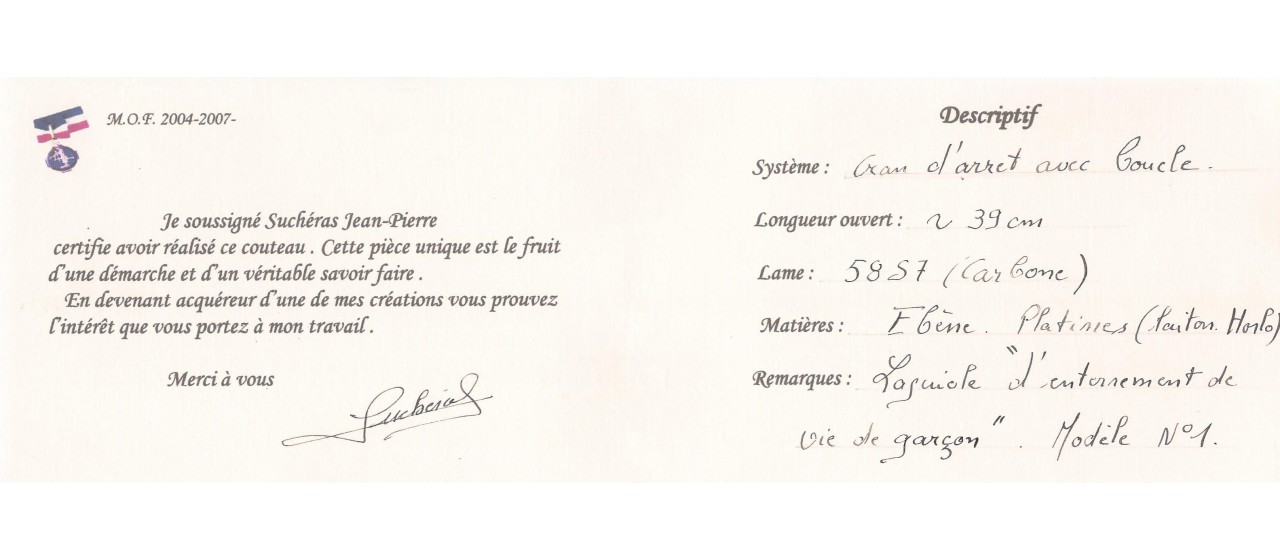 M.O.F. 2004-2007-
Je soussigné Suchéras Jean-Pierre
certifie avoir réalisé ce couteau . Cette pièce unique est le fruit
d'une démarche et d'un véritable savoir faire .
En devenant acquéreur d'une de mes créations vous prouvez
l'intérêt que vous portez à mon travail .
Merci à vous
Suchéras
Descriptif
Système : Cran d'arret avec boucle .
Longueur ouvert : ~ 39 cm
Lame : 58 S7 (Carbone)
Matières : Ebène . Platines (laiton. Horlo)
Remarques : Laguiole "d'enterrement de
vie de garçon" . Modèle N°1.